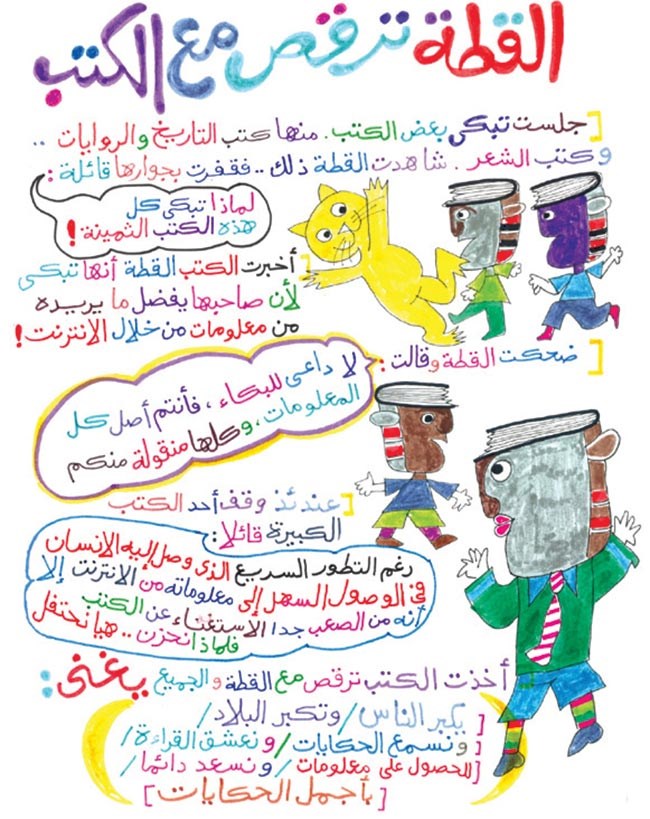 القطة ترقص مع الكتب
[ جلست تبكى بعض الكتب. منها كتب التاريخ والروايات ..
وكتب الشعر. شاهدت القطة ذلك .. فقفزت بجوارها قائلة :
لماذا تبكى كل
هذه الكتب الثمينة !
[ أخبرت الكتب القطة أنها تبكى
لأن صاحبها يفضل ما يريده
من معلومات من خلال الانترنت !
[ ضحكت القطة وقالت :
لا داعى للبكاء ، فأنتم أصل كل
المعلومات ، وكلها منقولة منكم
[ عندئذ وقف أحد الكتب
الكبيرة قائلا :
رغم التطور السريع الذى وصل إليه الإنسان
فى الوصول السهل إلى معلوماته من الانترنت إلا
أنه من الصعب جدا الاستغناء عن الكتب
فلماذا نحزن .. هيا نحتفل
أخذت الكتب ترقص مع القطة والجميع يغنى :
[ يكبر الناس / وتكبر البلاد /
[ ونسمع الحكايات / ونعشق القراءة /
[ للحصول على معلومات / ونسعد دائما /
[ بأجمل الحكايات ]